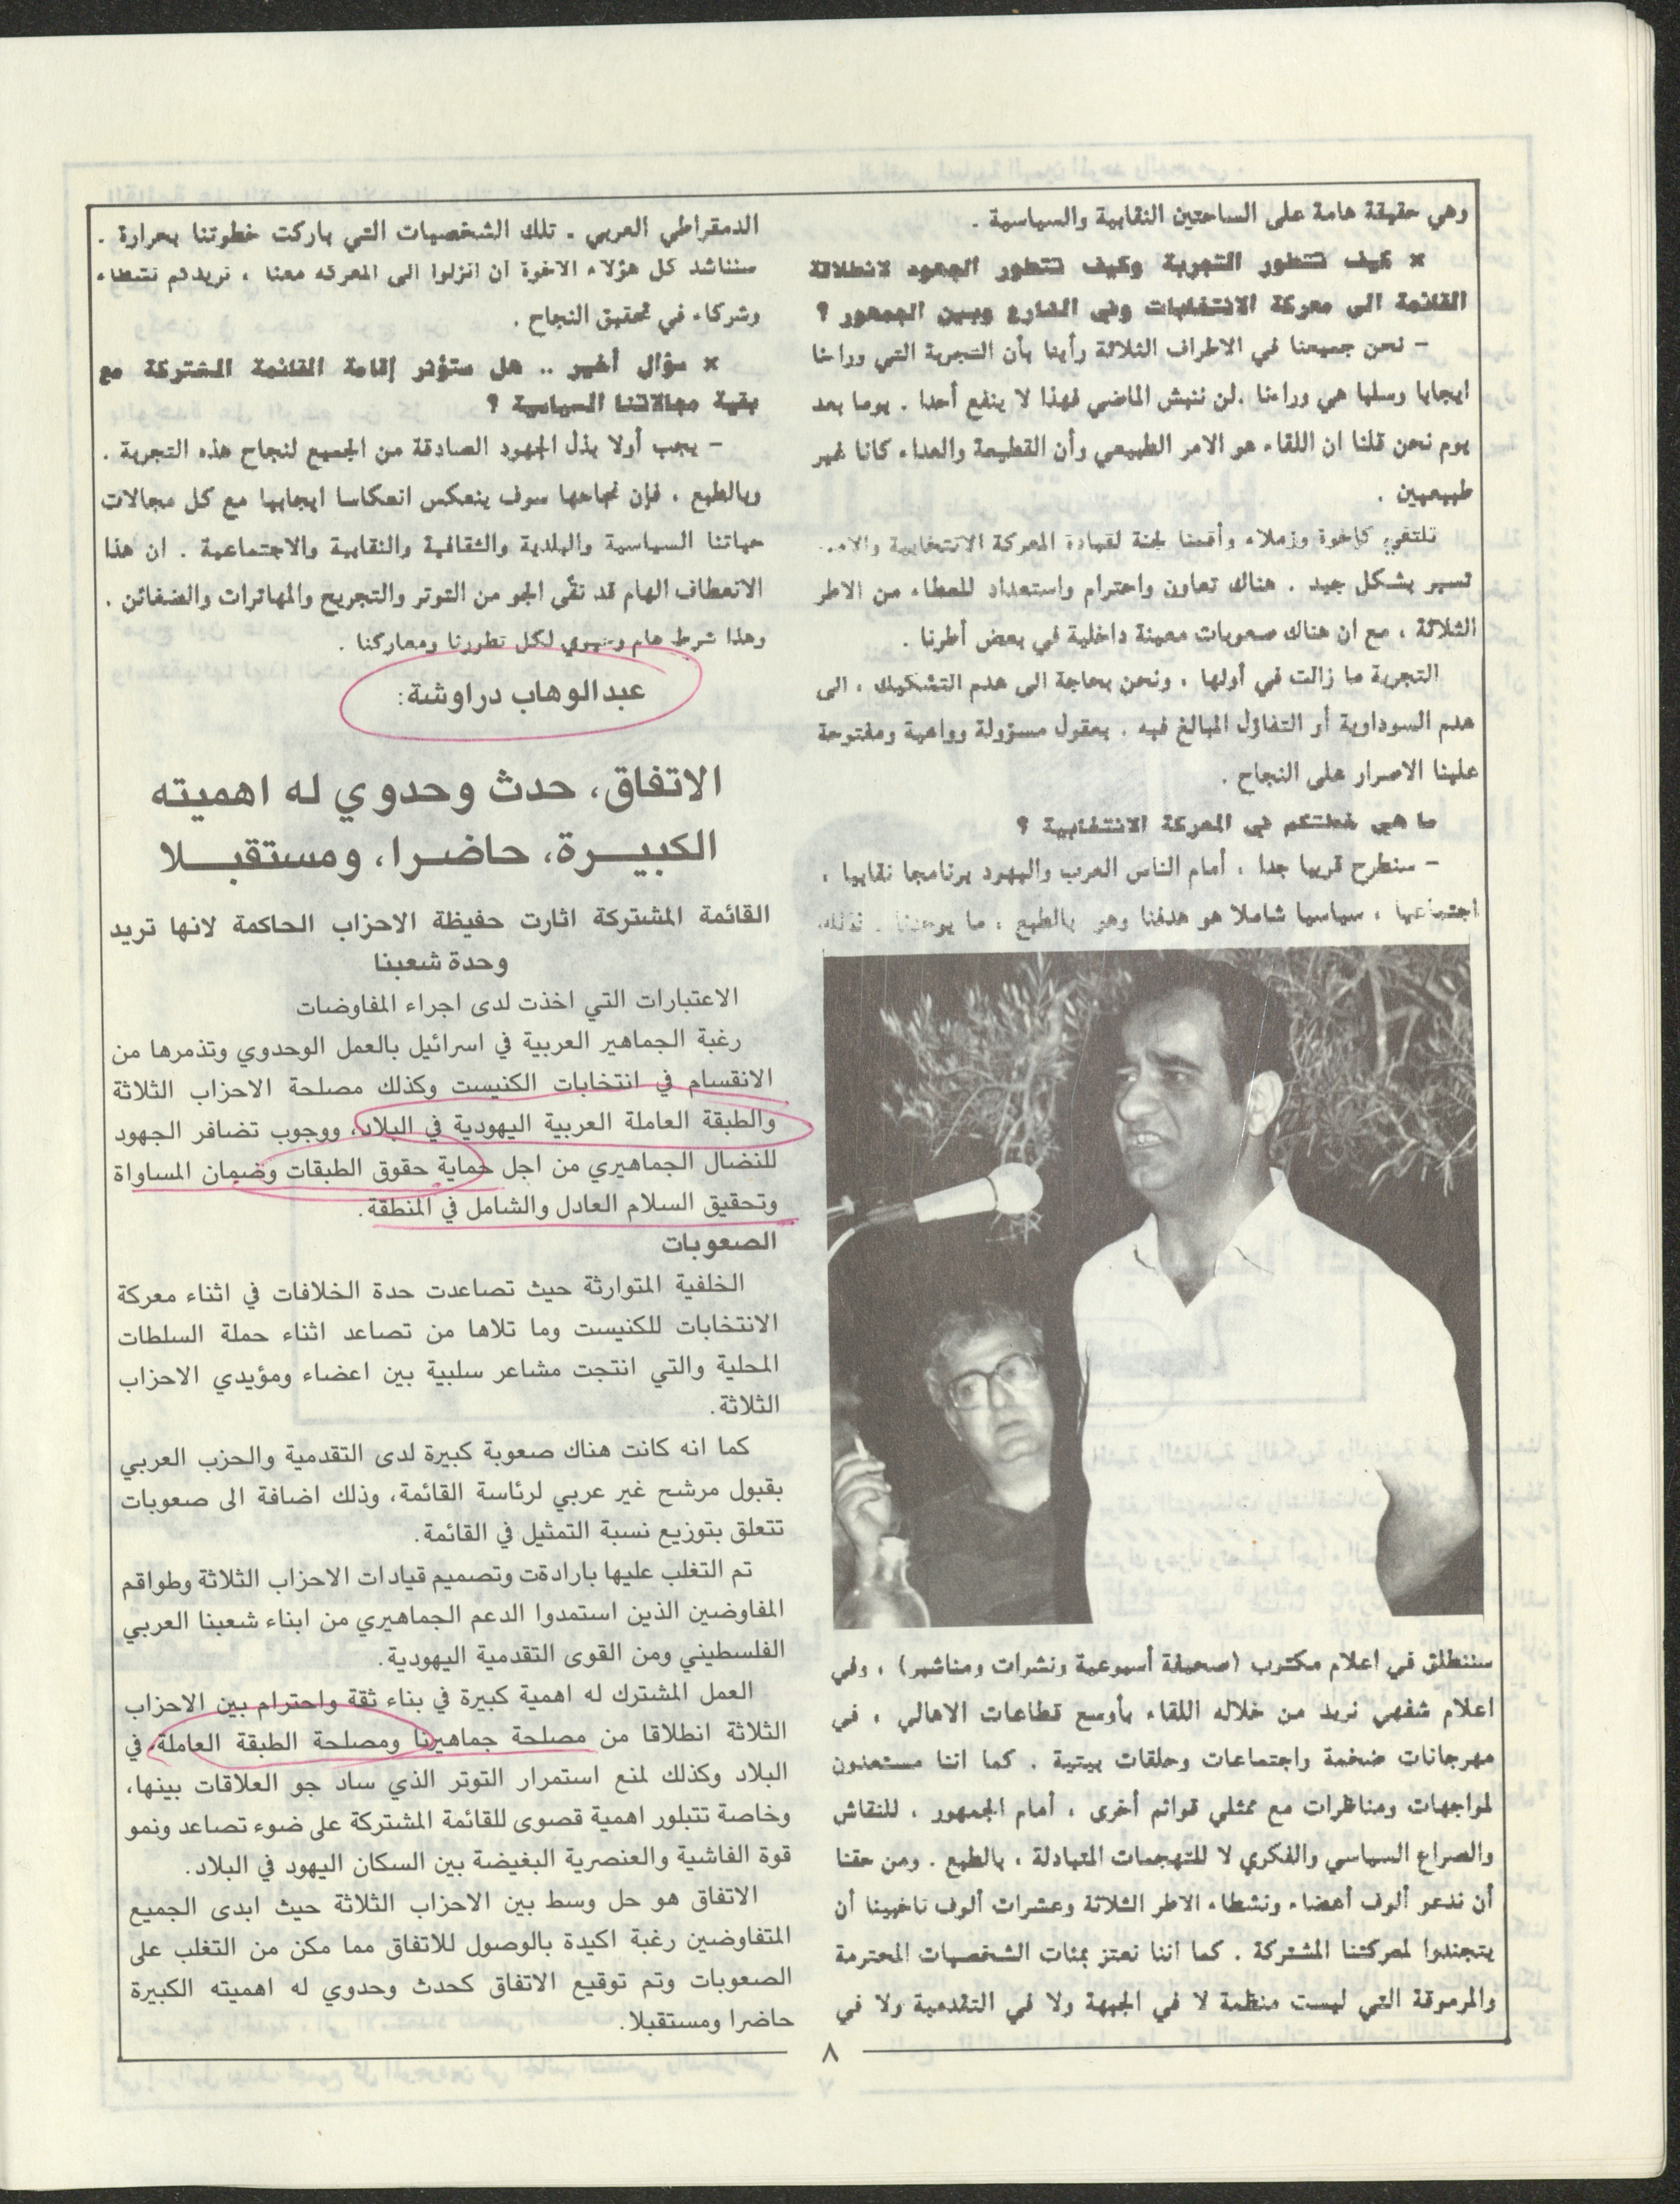 وهي حقيقة هامة على الساحتين النقابية والسياسية .
× كيف تتطور التجربة وكيف تتطور الجهود لانطلاقة
القائمة الى معركة الانتخابات وفي الشارع وبين الجمهور ؟
– نحن جميعنا في الاطراف الثلاثة رأينا بأن التجربة التي وراءنا
ايجابا وسلبا هي وراءنا .لن ننبش الماضي فهذا لا ينفع أحدا . يوما بعد
يوم نحن قلنا ان اللقاء هو الامر الطبيعي وأن القطيعة والعداء كانا غير
طبيعيين .
نلتقي كإخوة وزملاء وأقمنا لجنة لقيادة المعركة الانتخابية
تسير بشكل جيد . هناك تعاون واحترام واستعداد للعطاء من الاطر
الثلاثة ، مع ان هناك صعوبات معينة داخلية في بعض أطرنا .
التجربة ما زالت في أولها ، ونحن بحاجة الى عدم التشكيك ، الى
عدم السوداوية أو التفاؤل المبالغ فيه . بعقول مسؤولة وواعية ومفتوحة
علينا الاصرار على النجاح .
ما هي خطتكم في المعركة الانتخابية ؟
– سنطرح قريبا جدا ، أمام الناس العرب واليهود برنامجا نقابيا ،
اجتماعيا ، سياسيا شاملا هو هدفنا وهو بالطبع ، ما يوحدنا . لذلك
سننطلق في اعلام مكتوب (صحيفة أسبوعية ونشرات ومناشير) ، وفي
اعلام شفهي نريد من خلاله اللقاء بأوسع قطاعات الاهالي ، في
مهرجانات ضخمة واجتماعات وحلقات بيتية . كما اننا مستعدون
لمواجهات ومناظرات مع ممثلي قوائم أخرى ، أمام الجمهور ، للنقاش
والصراع السياسي والفكري لا للتهجمات المتبادلة ، بالطبع . ومن حقنا
أن ندعو ألوف أعضاء ونشطاء الاطر الثلاثة وعشرات ألوف ناخبينا أن
يتجندوا لمعركتنا المشتركة . كما اننا نعتز بمئات الشخصيات المحترمة
والمرموقة التي ليست منظمة لا في الجبهة ولا في التقدمية ولا في
الدمقراطي العربي . تلك الشخصيات التي باركت خطوتنا بحرارة .
سنناشد كل هؤلاء الاخوة ان انزلوا الى المعركة معنا ، نريدكم نشطاء
وشركاء في تحقيق النجاح .
× سؤال أخير .. هل ستؤثر إقامة القائمة المشتركة مع
بقية مجالاتنا السياسية ؟
– يجب أولا بذل الجهود الصادقة من الجميع لنجاح هذه التجربة .
وبالطبع ، فإن نجاحها سوف ينعكس انعكاسا ايجابيا مع كل مجالات
حياتنا السياسية والبلدية والثقافية والنقابية والاجتماعية . ان هذا
الانعطاف الهام قد نقّى الجو من التوتر والتجريح والمهاترات والضغائن .
وهذا شرط هام وحيوي لكل تطورنا ومعاركنا .
عبدالوهاب دراوشة:
الاتفاق، حدث وحدوي له اهميته
الكبيــرة، حاضـرا، ومستقبــلا
القائمة المشتركة اثارت حفيظة الاحزاب الحاكمة لانها تريد
وحدة شعبنا
الاعتبارات التي اخذت لدى اجراء المفاوضات
رغبة الجماهير العربية في اسرائيل بالعمل الوحدوي وتذمرها من
الانقسام في انتخابات الكنيست وكذلك مصلحة الاحزاب الثلاثة
والطبقة العاملة العربية اليهودية في البلاد، ووجوب تضافر الجهود
للنضال الجماهيري من اجل حماية حقوق الطبقات وضمان المساواة
وتحقيق السلام العادل والشامل في المنطقة.
الصعوبات
الخلفية المتوارثة حيث تصاعدت حدة الخلافات في اثناء معركة
الانتخابات للكنيست وما تلاها من تصاعد اثناء حملة السلطات
المحلية والتي انتجت مشاعر سلبية بين اعضاء ومؤيدي الاحزاب
الثلاثة.
كما انه كانت هناك صعوبة كبيرة لدى التقدمية والحزب العربي
بقبول مرشح غير عربي لرئاسة القائمة، وذلك اضافة الى صعوبات
تتعلق بتوزيع نسبة التمثيل في القائمة.
تم التغلب عليها بارادةت وتصميم قيادات الاحزاب الثلاثة وطواقم
المفاوضين الذين استمدوا الدعم الجماهيري من ابناء شعبنا العربي
الفلسطيني ومن القوى التقدمية اليهودية.
العمل المشترك له اهمية كبيرة في بناء ثقة واحترام بين الاحزاب
الثلاثة انطلاقا من مصلحة جماهيرنا ومصلحة الطبقة العاملة في
البلاد وكذلك لمنع استمرار التوتر الذي ساد جو العلاقات بينها،
وخاصة تتبلور اهمية قصوى للقائمة المشتركة على ضوء تصاعد ونمو
قوة الفاشية والعنصرية البغيضة بين السكان اليهود في البلاد.
الاتفاق هو حل وسط بين الاحزاب الثلاثة حيث ابدى الجميع
المتفاوضين رغبة اكيدة بالوصول للاتفاق مما مكن من التغلب على
الصعوبات وتم توقيع الاتفاق كحدث وحدوي له اهميته الكبيرة
حاضرا ومستقبلا.
٨